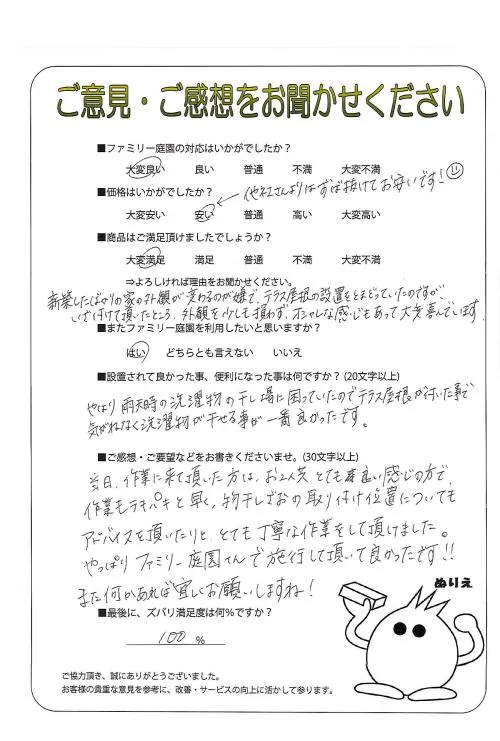 ご意見・ご感想をお聞かせください
■ファミリー庭園の対応はいかがでしたか?
大変良い 良い 普通 不満 大変不満
■価格はいかがでしたか? ← 他社さんよりはずば抜けてお安いです!
大変安い 安い 普通 高い 大変高い
■商品はご満足頂けましたでしょうか?
大変満足 満足 普通 不満 大変不満
⇒よろしければ理由をお聞かせください。
新築したばかりの家の外観が変わるのが嫌で、テラス屋根の設置をとまどっていたのですが、
いざ付けて頂いたところ、外観を少しも損わず、オシャレな感じもあって大変喜んでいます。
■またファミリー庭園を利用したいと思いますか?
はい どちらとも言えない いいえ
■設置されて良かった事、便利になった事は何ですか? (20文字以上)
やはり雨天時の洗濯物の干し場に困っていたのでテラス屋根が付いた事で
気がねなく洗濯物が干せる事が一番良かったです。
■ご感想・ご要望などをお書きくださいませ。(30文字以上)
当日、作業に来て頂いた方は、お2人共とても感じの方で、
作業もテキパキと早く、物干しざおの取り付け位置についても
アドバイスを頂いたりと、とても丁寧な作業をして頂けました。
やっぱりファミリー庭園さんで施行して頂いて良かったです!!
また何かあれば宜しくお願いしますね!
ぬりえ
■最後に、ズバリ満足度は何%ですか?
100 %
ご協力頂き、誠にありがとうございました。
お客様の貴重な意見を参考に、改善・サービスの向上に活かして参ります。